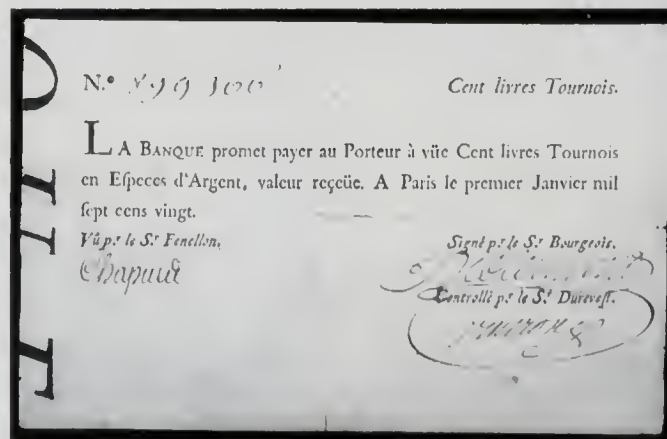 N.º Cent livres Tournois.
LA BANQUE promet payer au Porteur à vûe Cent livres Tournois
en Eſpeces d'Argent, valeur reçeüe. A Paris le premier Janvier mil
ſept cens vingt.
Vû p.r le S.r Fenellon. Signé p.r le S.r Bourgeois.
Chapuud
Controllé p.r le S.r Dureveſt.